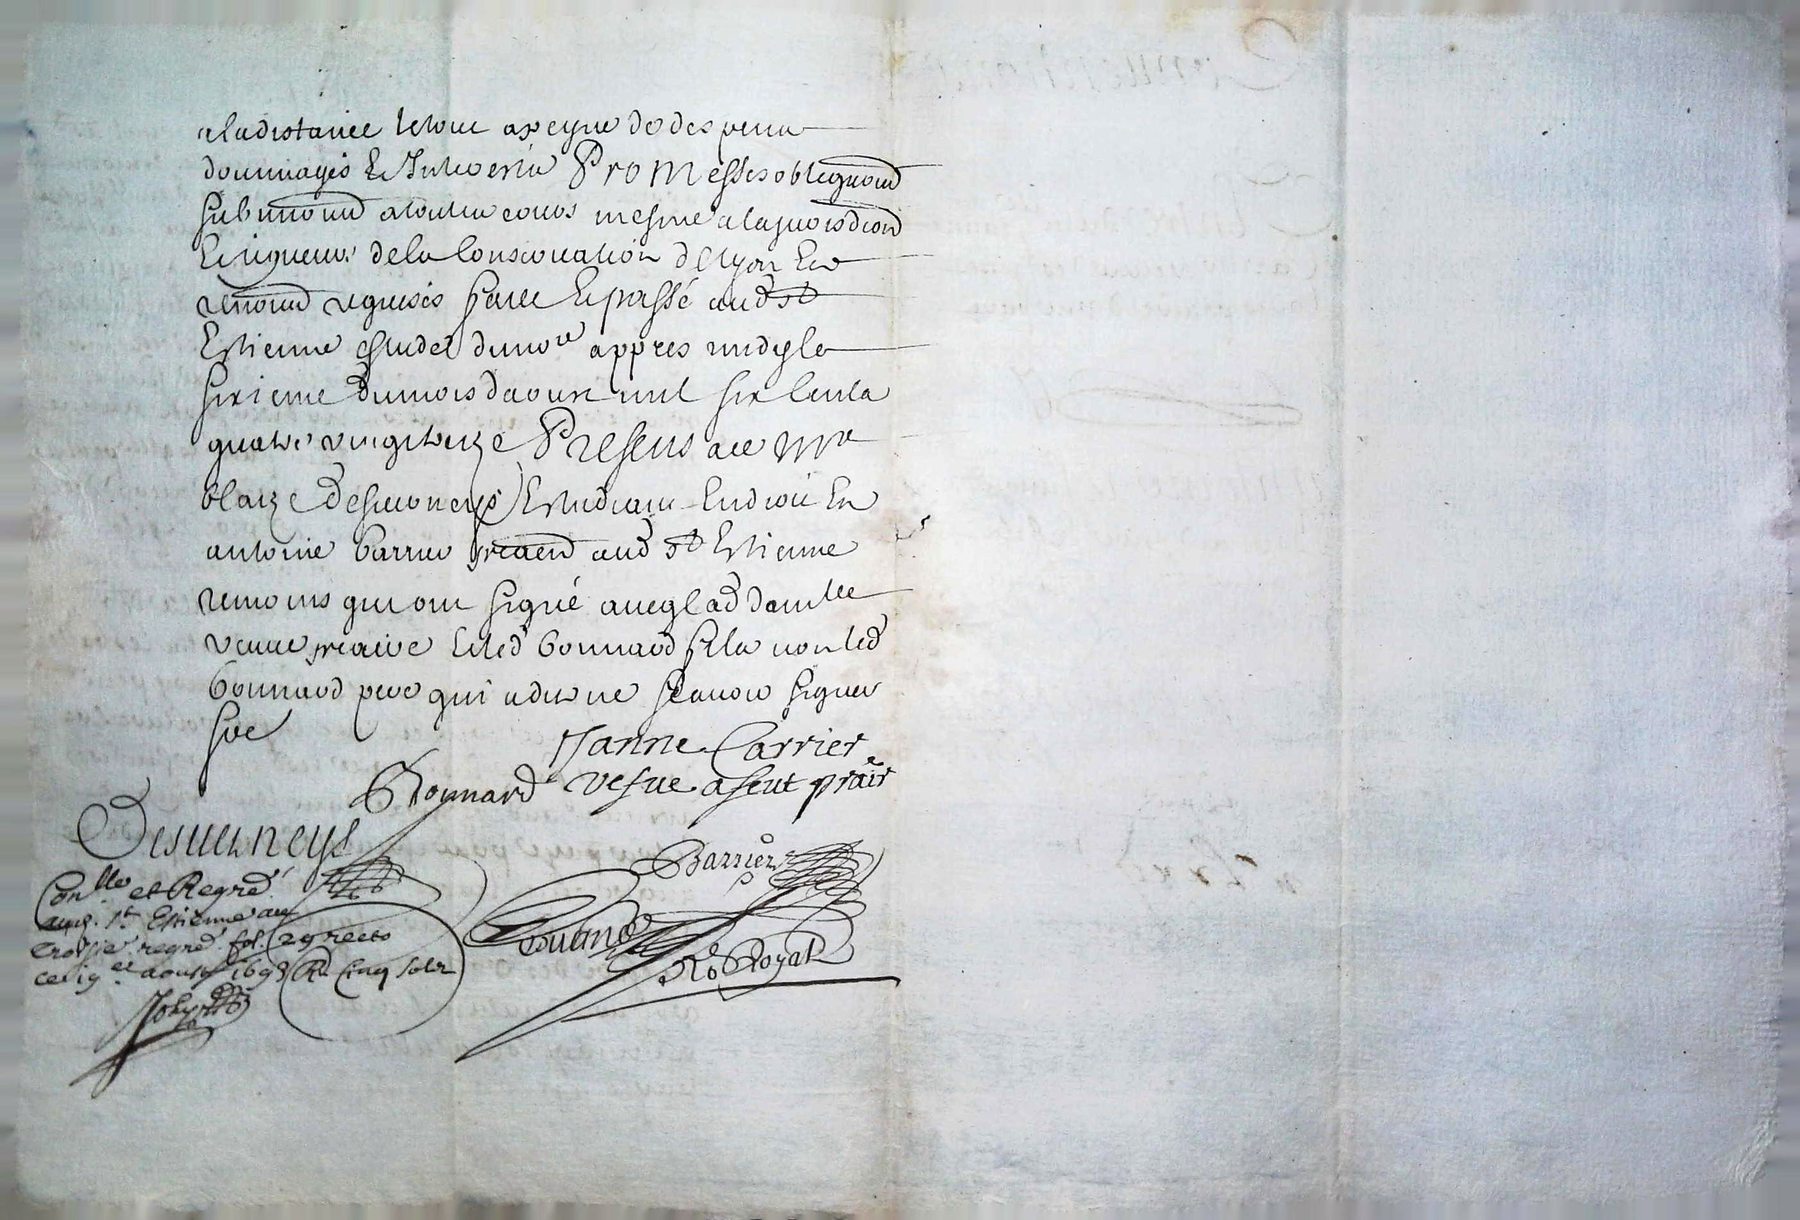 a la distance le tout a peyne de des pens
dommages & Interestz Promesses obligeans
submissions a toutes cours mesme a la jurisdion
& rigueurs de la Conservation de lyon &
renons requises faict & passé aud st
Estienne estude du nore appres midy le
sixieme du mois daoust mil six Cents
quatre vingt treize Presens a ce Mre
blaize desverneys Estudiant En droit Et
antoine barrier praen aud st Estienne
temoins qui ont signé avec lad damlle
veuve praire & led bonnard fils non led
bonnard pere qui a dit ne scavoir signer
Janne Carrier
Bonnard vefve a feut praire
Desverneys
Barrier
Conlle et Regré
aud. St Estienne au
regre fol. 29 recto
ce 19e aoust 1693 R. Cinq solz
Re Royal